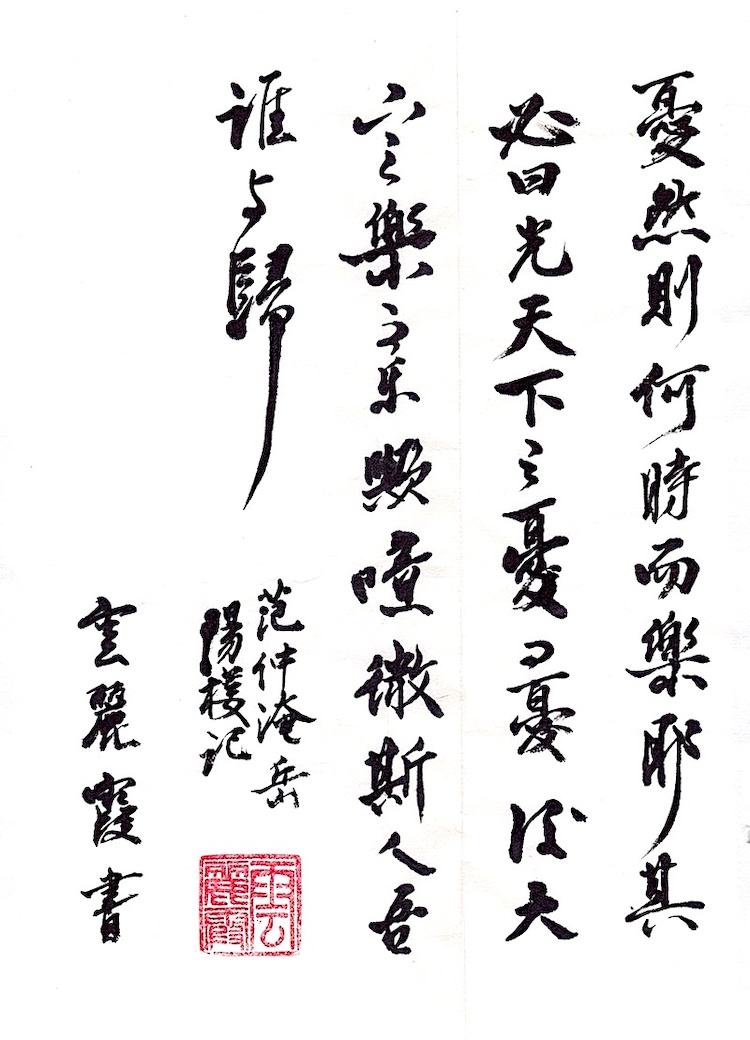 憂然則何時而樂耶其
必曰先天下之憂而憂後天
下之樂而樂歟噫微斯人吾
誰与歸
范仲淹岳
陽樓記
雲麗霞書
雲麗霞